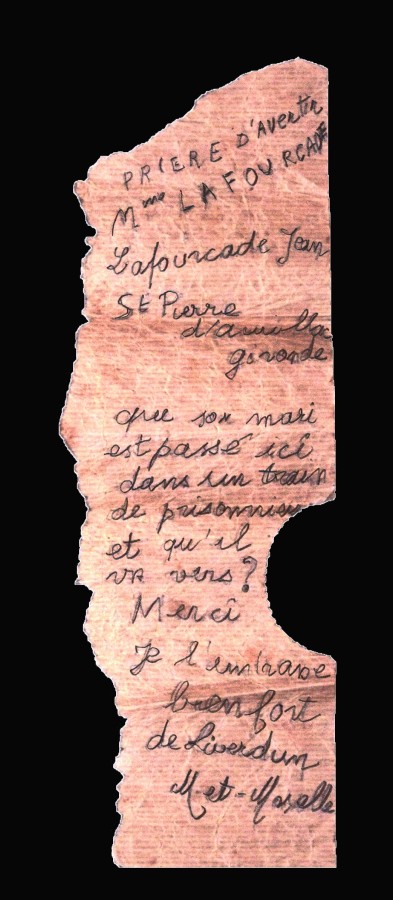 PRIERE D'AVERTIR
Mme LAFOURCADE
Lafourcade Jean
St Pierre
d'aurillac
gironde
que son mari
est passé ici
dans un train
de prisonnier
et qu'il
va vers?
Merci
Je l'embrasse
bien fort
de Liverdun
M-et-Moselle